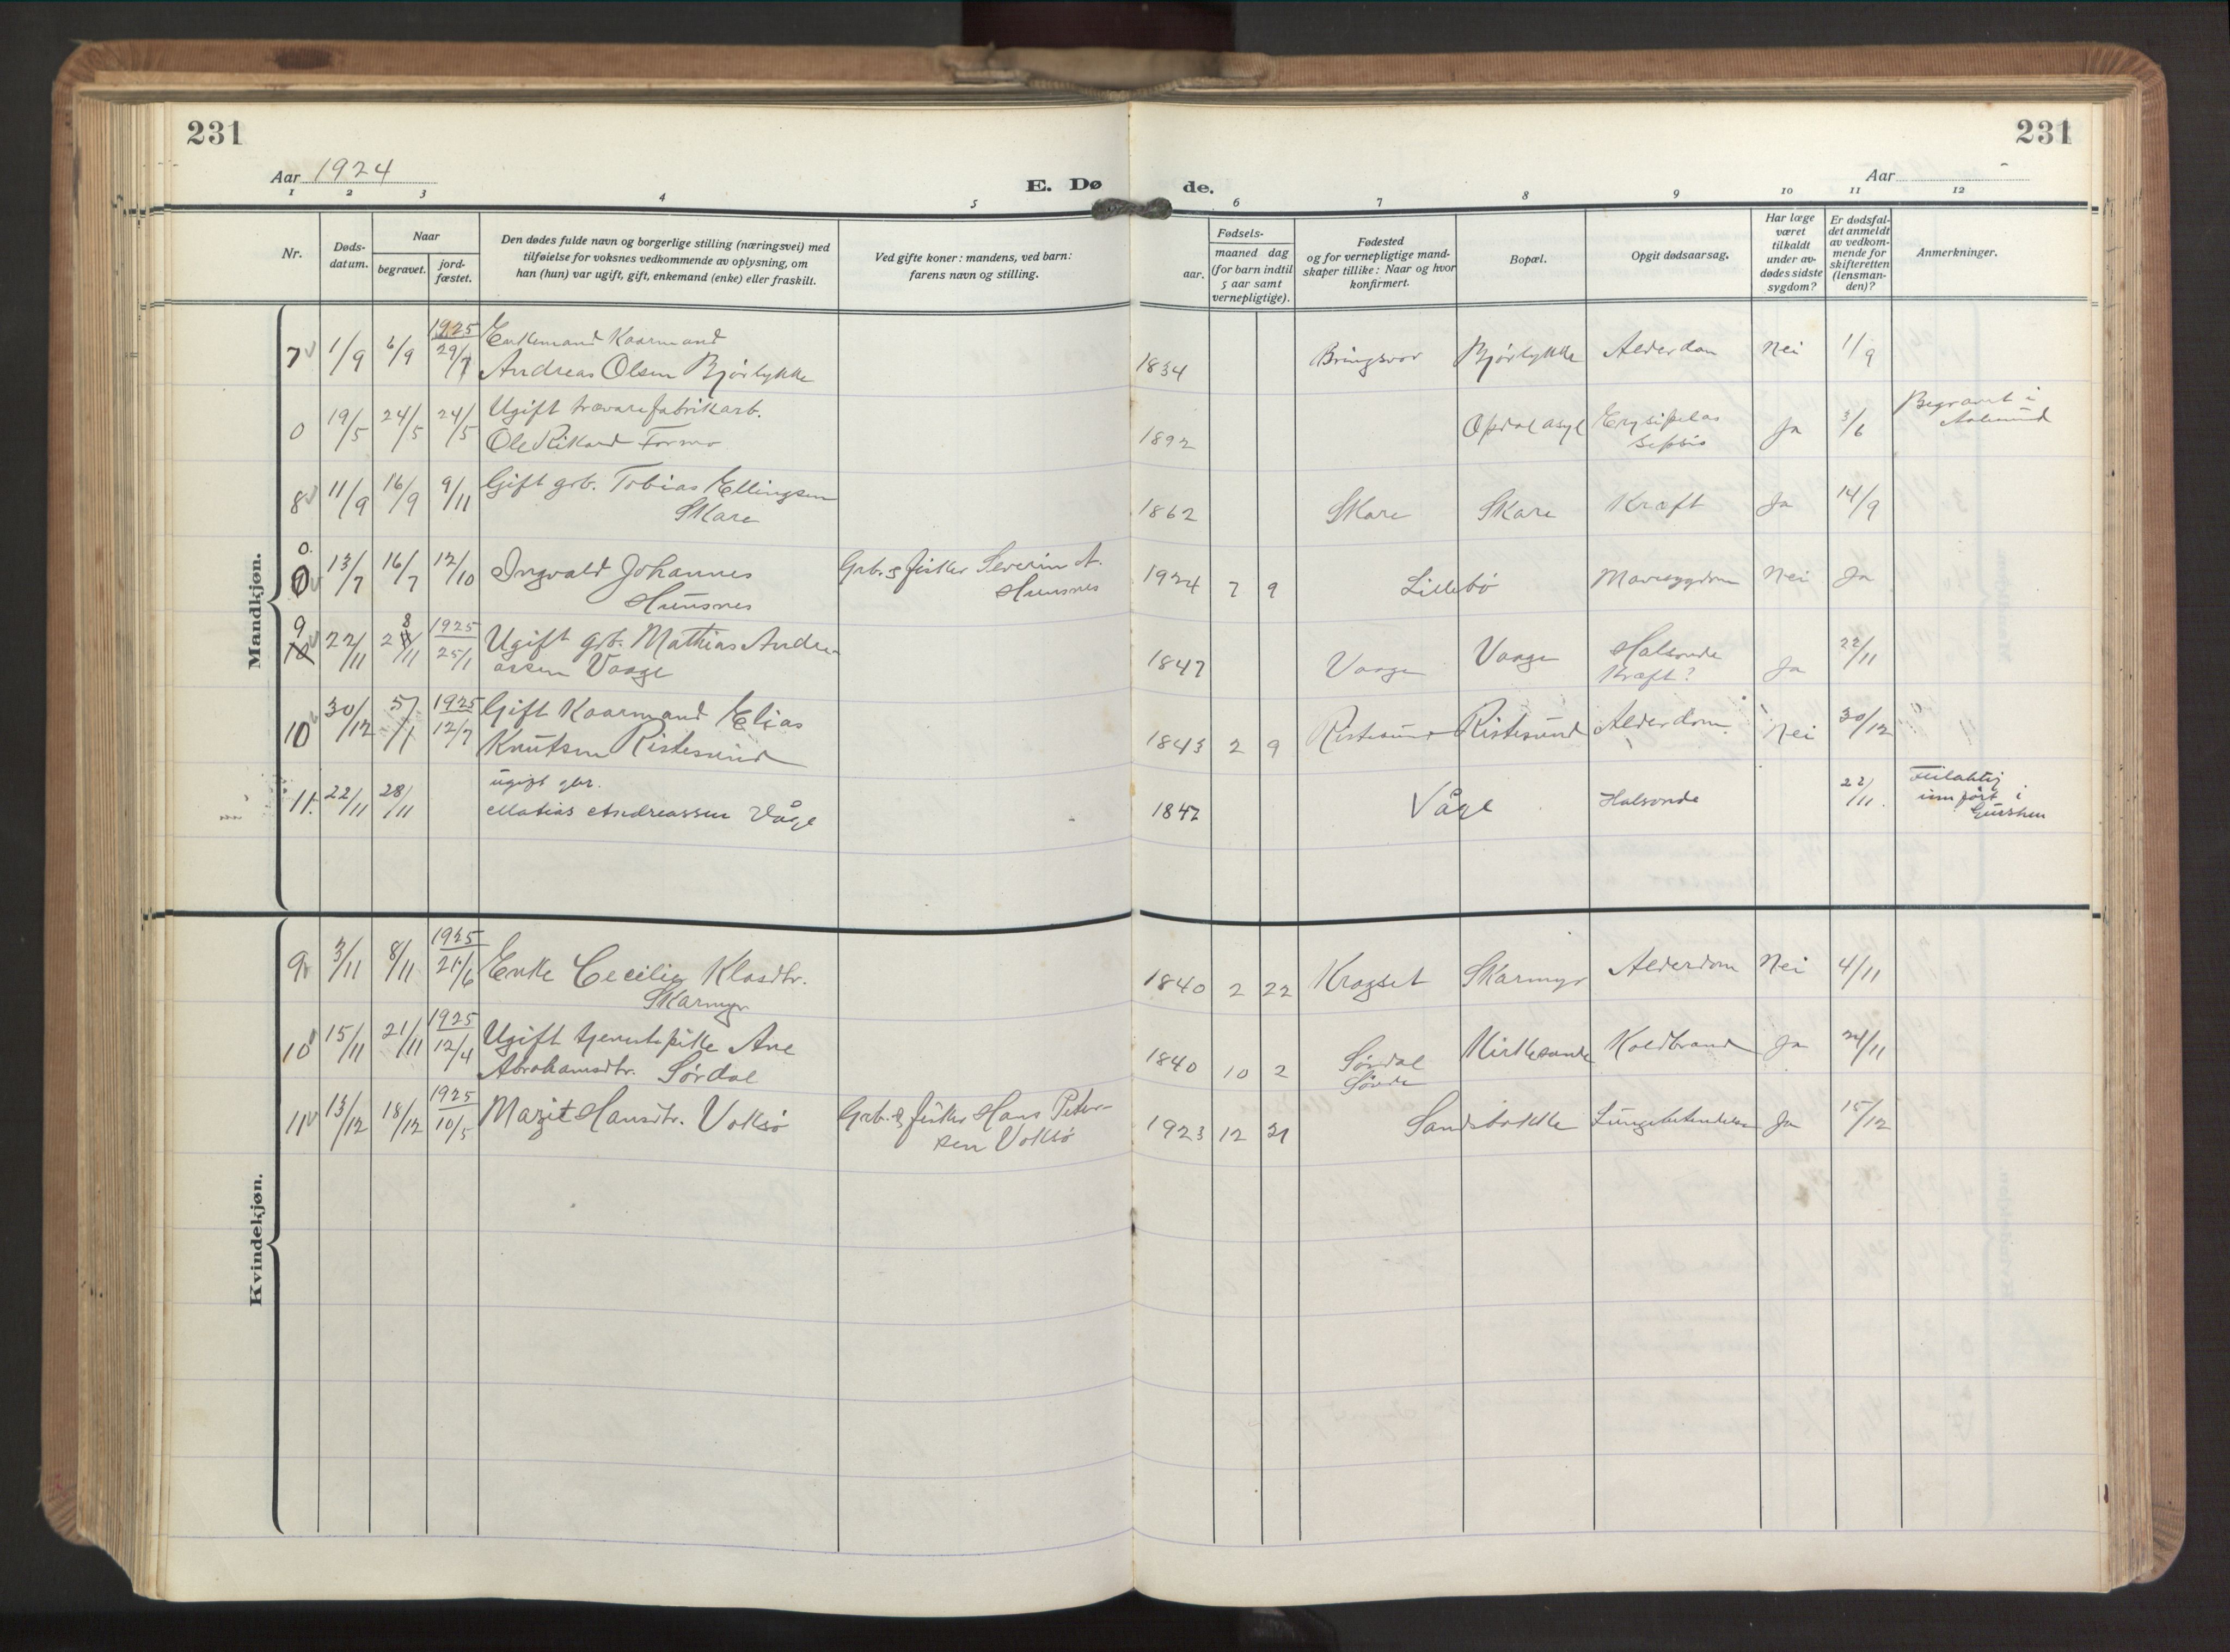 231
231
Aar 1924
E. Dø
de.
Aar
1 2 3 4 5 6 7 8 9 10 11 12
Nr.
Døds-
datum.
Naar
begravet.
jord-
fæstet.
Den dødes fulde navn og borgerlige stilling (næringsvei) med
tilføielse for voksnes vedkommende av oplysning, om
han (hun) var ugift, gift, enkemand (enke) eller fraskilt.
Ved gifte koner: mandens, ved barn:
farens navn og stilling.
Fødsels-
aar.
maaned dag
(for barn indtil
5 aar samt
vernepligtige).
Fødested
og for vernepligtige mand-
skaper tillike: Naar og hvor
konfirmert.
Bopæl.
Opgit dødsaarsag.
Har læge
været
tilkaldt
under av-
dødes sidste
sygdom?
Er dødsfal-
det anmeldt
av vedkom-
mende for
skifteretten
(lensman-
den)?
Anmerkninger.
Mandkjøn.
7 1/9 6/9 1925 29/7 Enkemand Kaarmand
Andreas Olsen Bjørlykke 1834 Bringsvor Bjørlykke Alderdom Nei 1/9
0 19/5 24/5 24/5 Ugift trævarefabrikarb.
Ole Rikard Formo 1892 Opdal asyl Erysipelas
sepsis Ja 3/6 Begravet i
Aalesund
8 11/9 16/9 9/11 Gift grb. Tobias Ellingsen
Skare 1862 Skare Skare Kræft Ja 14/9
0. 13/7 16/7 12/10 Ingvald Johannes
Hunsnes Grb. & fisker Severin A.
Hunsnes 1924 7 9 Lillebö Mavesygdom Nei Ja
9
10 22/11 28/11 1925 25/1 Ugift grb. Mathias Andre-
assen Vaage 1847 Vaage Vaage Halsonde
Kræft? Ja 22/11
10 30/12 5/1 1925 12/7 Gift Kaarmand Elias
Knutsen Ristesund 1843 2 9 Ristesund Ristesund Alderdom Nei 30/12
11. 22/11 28/11 ugift gbr.
Matias Andreassen Våge 1847 Våge Halsonde 22/11. Feilaktig
innført i
Gursken
Kvindekjøn.
9 3/11 8/11 1925 21/6 Enke Cecilie Klasdtr.
Skarmyr 1840 2 22 Kragset Skarmyr Alderdom Nei 4/11
10 15/11 21/11 1925 12/4 Ugift tjenestepike Ane
Abrahamsdtr. Sördal 1840 10 2 Sördal
Sövde Kirkesande Koldbrand Ja 24/11
11 13/12 18/12 1925 10/5 Margit Hansdtr. Voksö Grb. & fisker Hans Peter-
sen Voksö 1923 12 21 Sandsbakke Lungebetændelse Ja 15/12